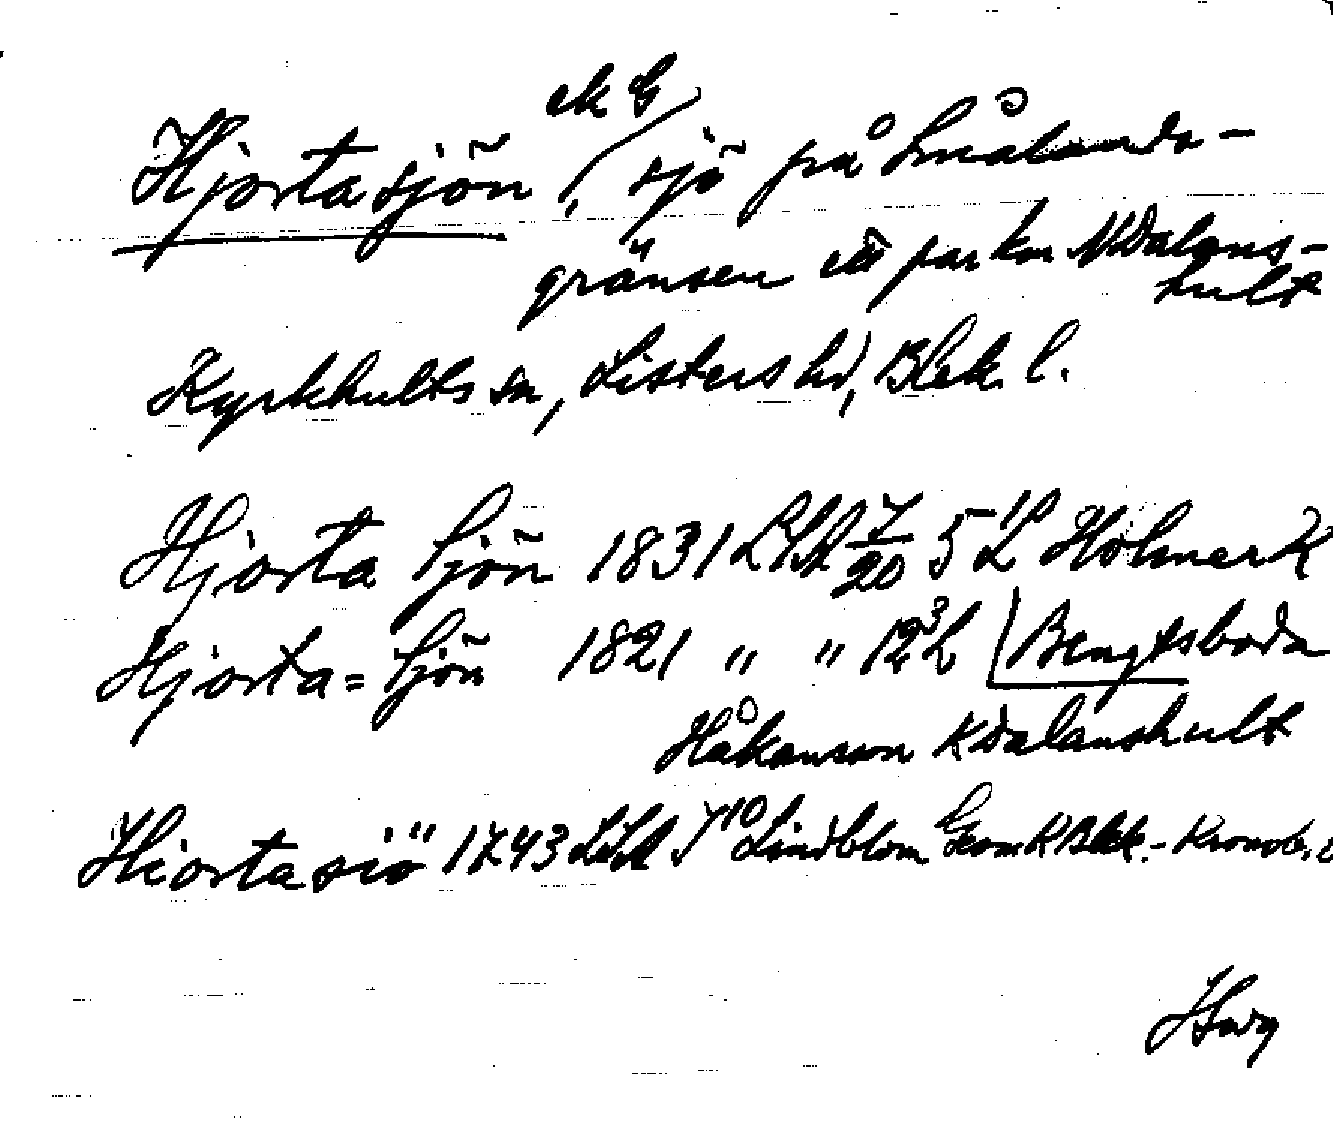 ek G
Hjortasjön, sjö på Smålands-
gränsen ett par km N Dalans-
hult
Kyrkhults sn, Listers hd, Blek. l.
Hjorta Sjön 1831 LSA 7/20 5 L Holmer K
Hjorta= Sjön 1821 " " 12 3 L Bengtsboda
Håkanson K Dalanshult
Hiorta siö 1743 LSA J 10 Lindblom Geom K Blek.- Kronob.